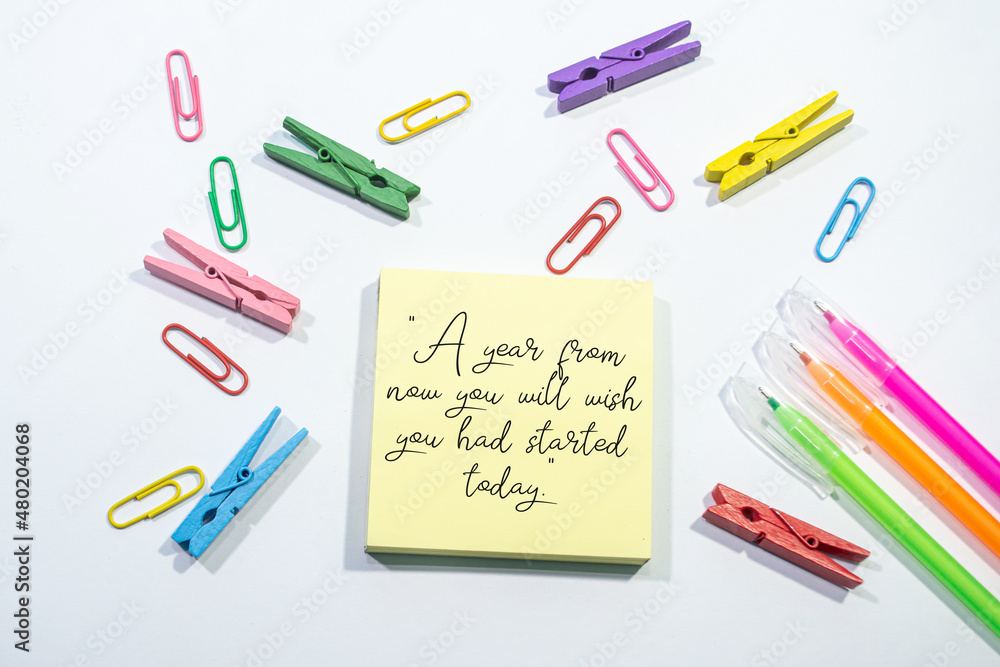 " A year from
now you will wish
you had started
today."
Adobe Stock | #480204068